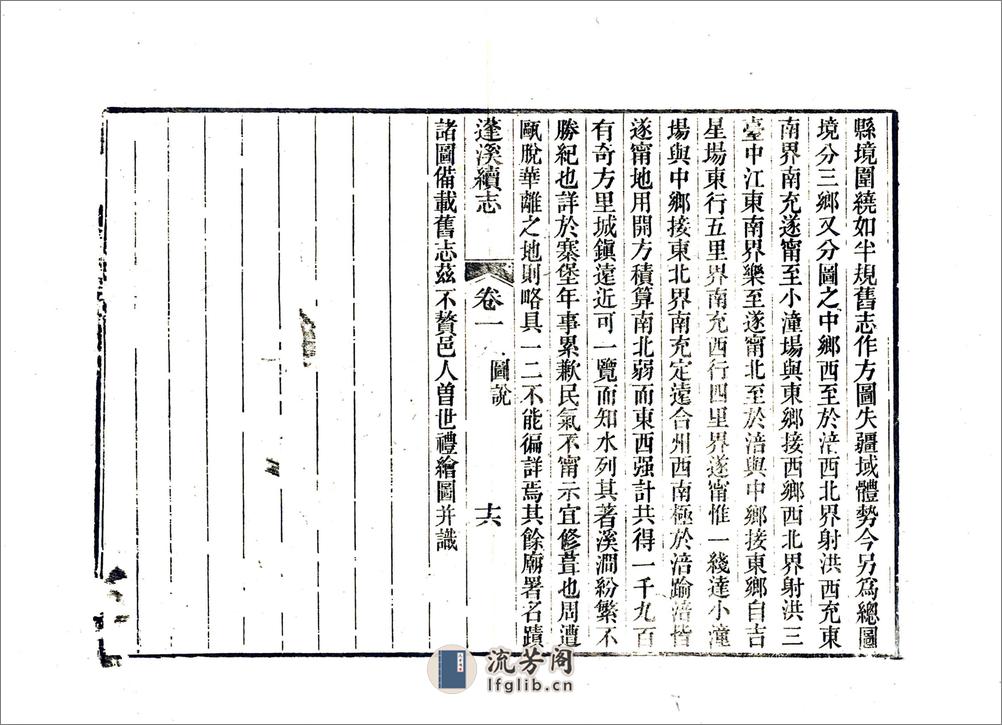 縣境圍繞如半規舊志作方圖失疆域體勢今另爲總圖
境分三鄉又分圖之中鄉西至於涪西北界射洪西充東
南界南充遂甯至小潼場與東鄉接西鄉西北界射洪三
臺中江東南界樂至遂甯北至於涪與中鄉接東鄉自吉
星場東行五里界南充西行四里界遂甯惟一綫達小潼
場與中鄉接東北界南充定遠合州西南極於涪踰涪皆
遂甯地用開方積算南北弱而東西强計共得一千九百
有奇方里城鎭遠近可一覽而知水列其著溪澗紛繁不
勝紀也詳於寨堡年事累歉民氣不甯示宜修葺也周遭
甌脫華離之地則略具一二不能徧詳焉其餘廟署名蹟
蓬溪續志
卷一
圖說
十六
諸圖備載舊志茲不贅邑人曾世禮繪圖并識
流芳阁
lfglib.cn